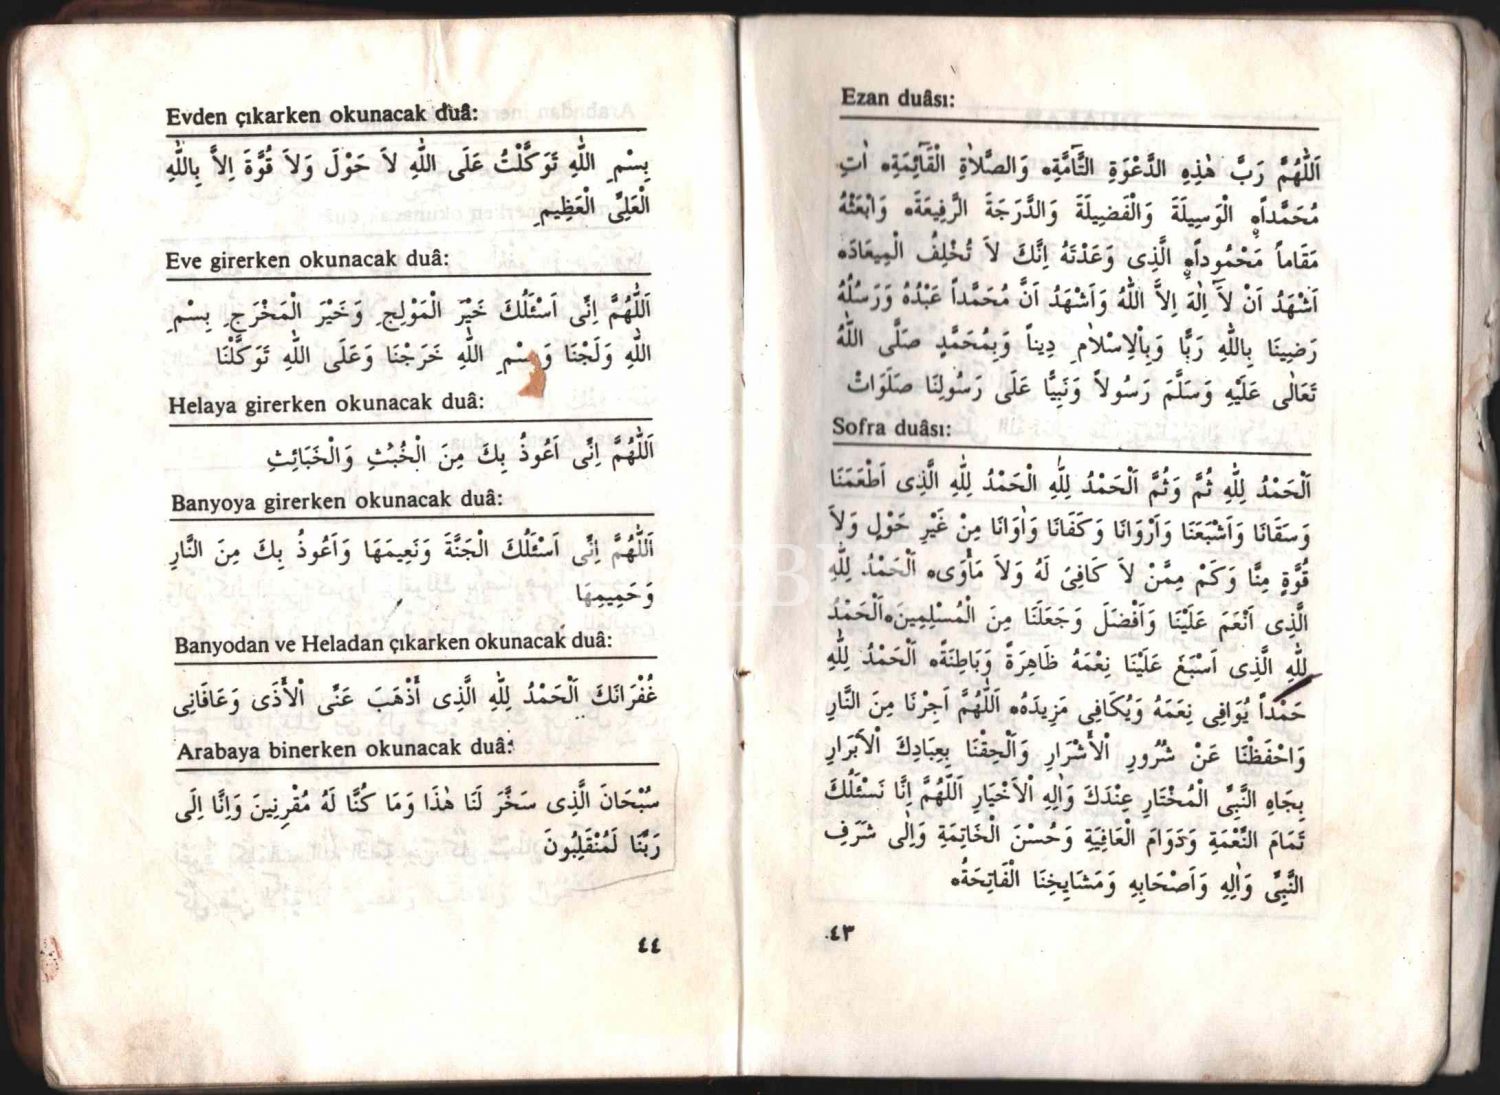 Ezan duâsı:
اَللّٰهُمَّ رَبَّ هٰذِهِ الدَّعْوَةِ التَّآمَّةِ، وَالصَّلاَةِ الْقَآئِمَةِ، اٰتِ
مُحَمَّداً، الْوَسِيلَةَ وَالْفَضِيلَةَ وَالدَّرَجَةَ الرَّفِيعَةَ، وَابْعَثْهُ
مَقَاماً مَحْمُوداً، الَّذِى وَعَدْتَهُ اِنَّكَ لاَ تُخْلِفُ الْمِيعَادَ،
اَشْهَدُ اَنْ لآَ اِلٰهَ اِلاَّ اللّٰهُ وَاَشْهَدُ اَنَّ مُحَمَّداً عَبْدُهُ وَرَسُلُهُ
رَضِينَا بِاللّٰهِ رَبًّا وَبِالْاِسْلاٰمِ دِيناً وَبِمُحَمَّدٍ صَلَّى اللّٰهُ
تَعَالٰى عَلَيْهِ وَسَلَّمَ رَسُولاً وَنَبِيًّا عَلَى رَسُولِنَا صَلَوَاتْ
Sofra duâsı:
اَلْحَمْدُ لِلّٰهِ ثُمَّ وَثُمَّ اَلْحَمْدُ لِلّٰهِ الْحَمْدُ لِلّٰهِ الَّذِى اَطْعَمَنَا
وَسَقَانَا وَاَشْبَعَنَا وَاَرْوَانَا وَكَفَانَا وَاٰوَانَا مِنْ غَيْرِ حَوْلٍ وَلاَ
قُوَّةٍ مِنَّا وَكَمْ مِمَّنْ لاَ كَافِىَ لَهُ وَلاَ مَأْوَى، اَلْحَمْدُ لِلّٰهِ
الَّذِى اَنْعَمَ عَلَيْنَا وَاَفْضَلَ وَجَعَلَنَا مِنَ الْمُسْلِمِينَ، اَلْحَمْدُ
لِلّٰهِ الَّذِى اَسْبَغَ عَلَيْنَا نِعْمَهُ ظَاهِرَةً وَبَاطِنَةً، اَلْحَمْدُ لِلّٰهِ
حَمْداً يُوَافِى نِعَمَهُ وَيُكَافِى مَزِيدَهُ، اَللّٰهُمَّ اَجِرْنَا مِنَ النَّارِ
وَاحْفَظْنَا عَنْ شُرُورِ الْأَشْرَارِ وَاَلْحِقْنَا بِعِبَادِكَ الْاَبْرَارِ
بِجَاهِ النَّبِىِّ الْمُخْتَارِ عِنْدَكَ وَاٰلِهِ الْاَخْيَارِ اَللّٰهُمَّ اِنَّا نَسْئَلُكَ
تَمَامَ النِّعْمَةِ وَدَوَامَ الْعَافِيَةِ وَحُسْنَ الْخَاتِمَةِ وَاِلٰى شَرَفِ
النَّبِىِّ وَاٰلِهِ وَاَصْحَابِهِ وَمَشَايِخِنَا الْفَاتِحَةُ،
٤٣
Evden çıkarken okunacak duâ:
بِسْمِ اللّٰهِ تَوَكَّلْتُ عَلَى اللّٰهِ لاَ حَوْلَ وَلاَ قُوَّةَ اِلاَّ بِاللّٰهِ
الْعَلِىِّ الْعَظِيمِ
Eve girerken okunacak duâ:
اَللّٰهُمَّ اِنِّى اَسْئَلُكَ خَيْرَ الْمَوْلِجِ وَخَيْرَ الْمَخْرَجِ بِسْمِ
اللّٰهِ وَلَجْنَا وَبِسْمِ اللّٰهِ خَرَجْنَا وَعَلَى اللّٰهِ تَوَكَّلْنَا
Helaya girerken okunacak duâ:
اَللّٰهُمَّ اِنِّى اَعُوذُ بِكَ مِنَ الْخُبُثِ وَالْخَبَائِثِ
Banyoya girerken okunacak duâ:
اَللّٰهُمَّ اِنِّى اَسْئَلُكَ الْجَنَّةَ وَنَعِيمَهَا وَاَعُوذُ بِكَ مِنَ النَّارِ
وَحَمِيمِهَا
Banyodan ve Heladan çıkarken okunacak duâ:
غُفْرَانَكَ اَلْحَمْدُ لِلّٰهِ الَّذِى أَذْهَبَ عَنِّى الْأَذَى وَعَافَانِى
Arabaya binerken okunacak duâ:
سُبْحَانَ الَّذِى سَخَّرَ لَنَا هٰذَا وَمَا كُنَّا لَهُ مُقْرِنِينَ وَاِنَّا اِلَى
رَبِّنَا لَمُنْقَلِبُونَ
٤٤